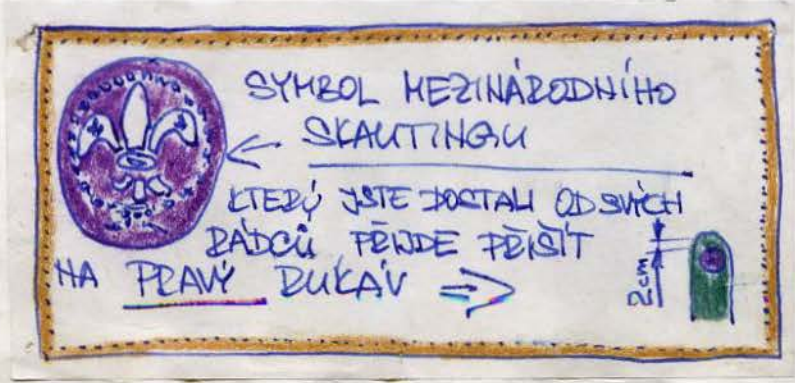 SYMBOL MEZINÁRODNÍHO
SKAUTINGU
KTERÝ JSTE DOSTALI OD SVÝCH
RÁDCŮ, PŘIJDE PŘIŠÍT
NA PRAVÝ RUKÁV
2cm